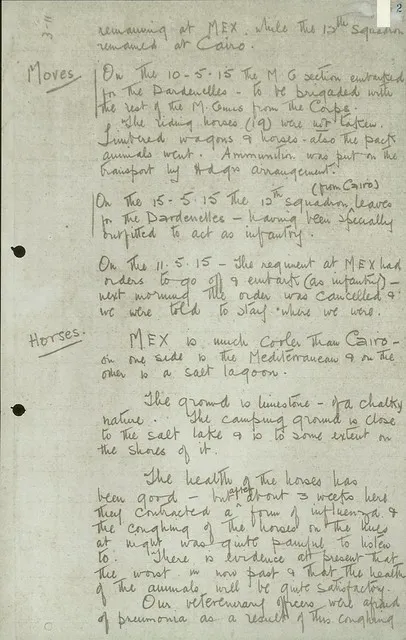 2
remaining at MEX, while the 12th Squadron
remained at Cairo.
Moves
On the 10-5-15 the M G section embarked
for the Dardenelles - to be brigaded with
the rest of the M. Guns from the Corps.
The riding horses (19) were not taken.
Limbered wagons & horses - also the pack
animals went. Ammunition was put on the
transport by Hdqrs arrangement.
(from Cairo)
On the 15-5-15 the 12th Squadron leaves
for the Dardenelles - having been specially
outfitted to act as infantry.
On the 11.5.15 - The regiment at MEX had
orders to go off & embark (as infantry) -
next morning the order was cancelled &
we were told to stay where we were.
Horses.
MEX is much cooler than Cairo -
on one side is the Mediterranean & on the
other is a salt lagoon.
The ground is limestone - of a chalky
nature. The camping ground is close
to the salt lake & is to some extent on
the shores of it.
The health of the horses has
been good - but after about 3 weeks here
they contracted a form of influenza &
the coughing of the horses on the lines
at night was quite painful to listen
to. There is evidence at present that
the worst is now past & that the health
of the animals will be quite satisfactory.
Our veterenary officers were afraid
of pneumonia as a result of this coughing